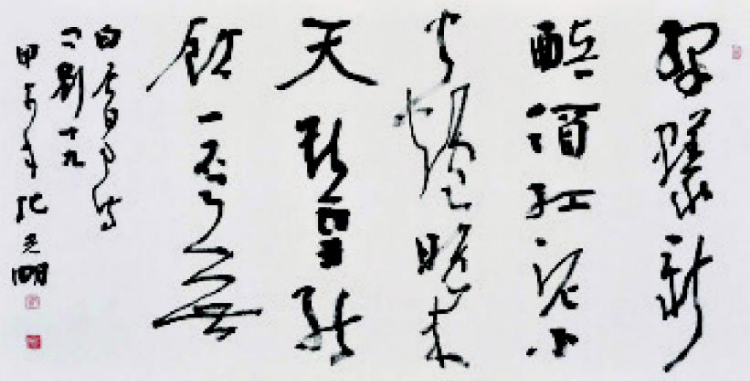 綠蟻新
醅酒紅泥小
火爐晚來
天欲雪能
飲一杯無
白居易詩
问劉十九
甲午年